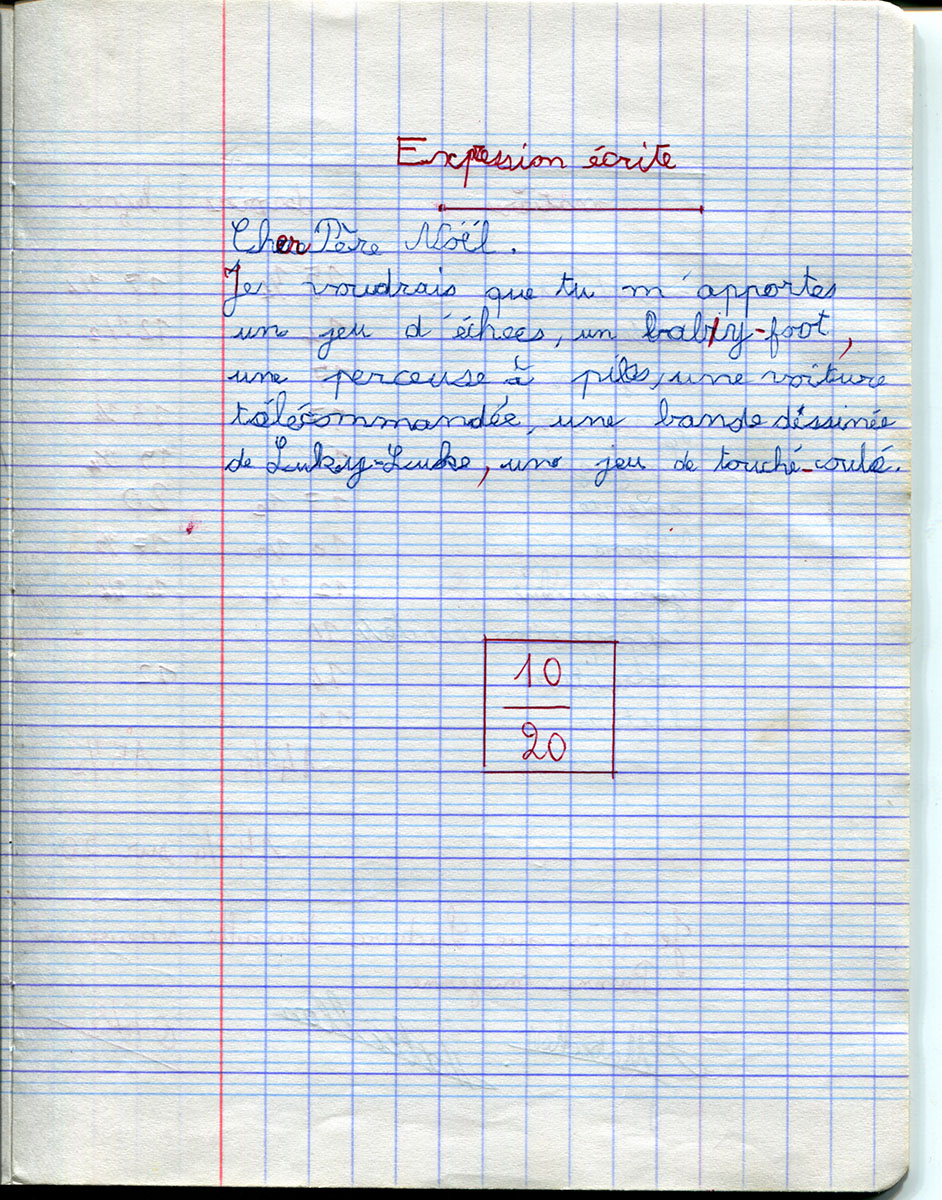 Expression écrite
Cher Père Noël.
Je voudrais que tu m'apportes
un jeu d'échecs, un baby-foot,
une perceuse à piles, une voiture
télécommandée, une bande déssinée
de Luky-Luke, une jeu de touché-coulé.
10
20